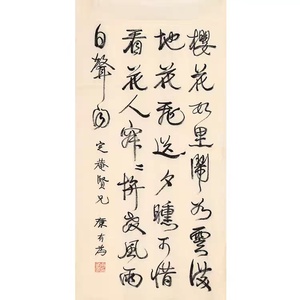 櫻花里鬧如雲滿
地花飛送夕曛可惜
看花人寂〻拚教風雨
自聲聞 定庵賢兄 康有為